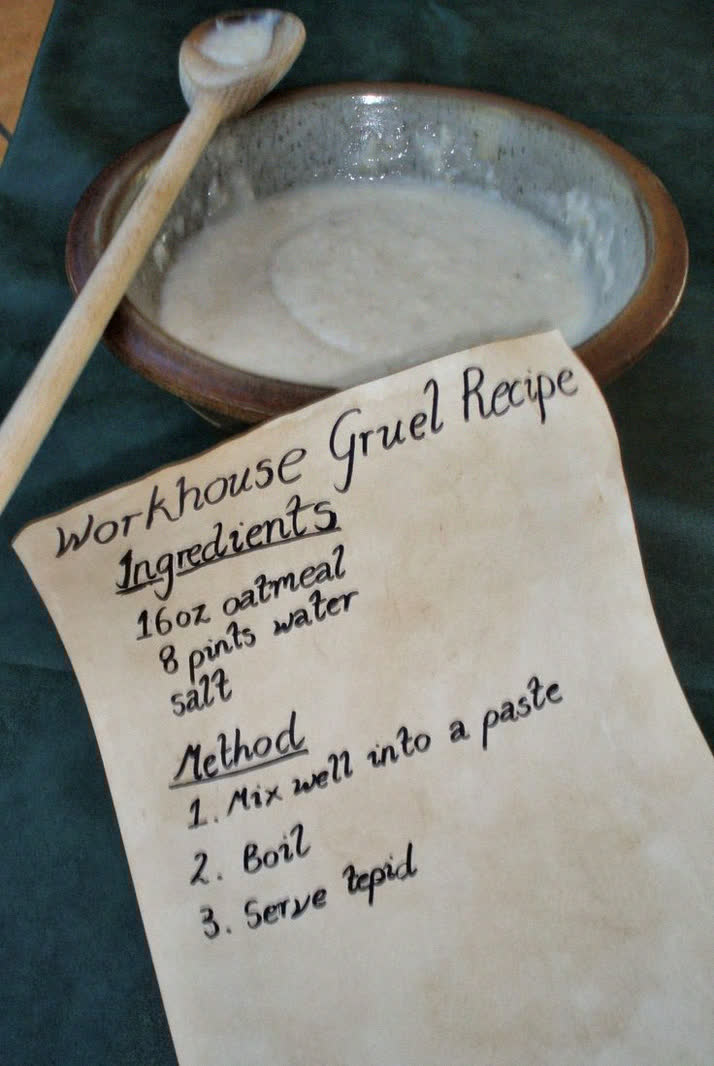 Workhouse Gruel Recipe
Ingredients
16oz oatmeal
8 pints water
salt
Method
1. Mix well into a paste
2. Boil
3. Serve tepid